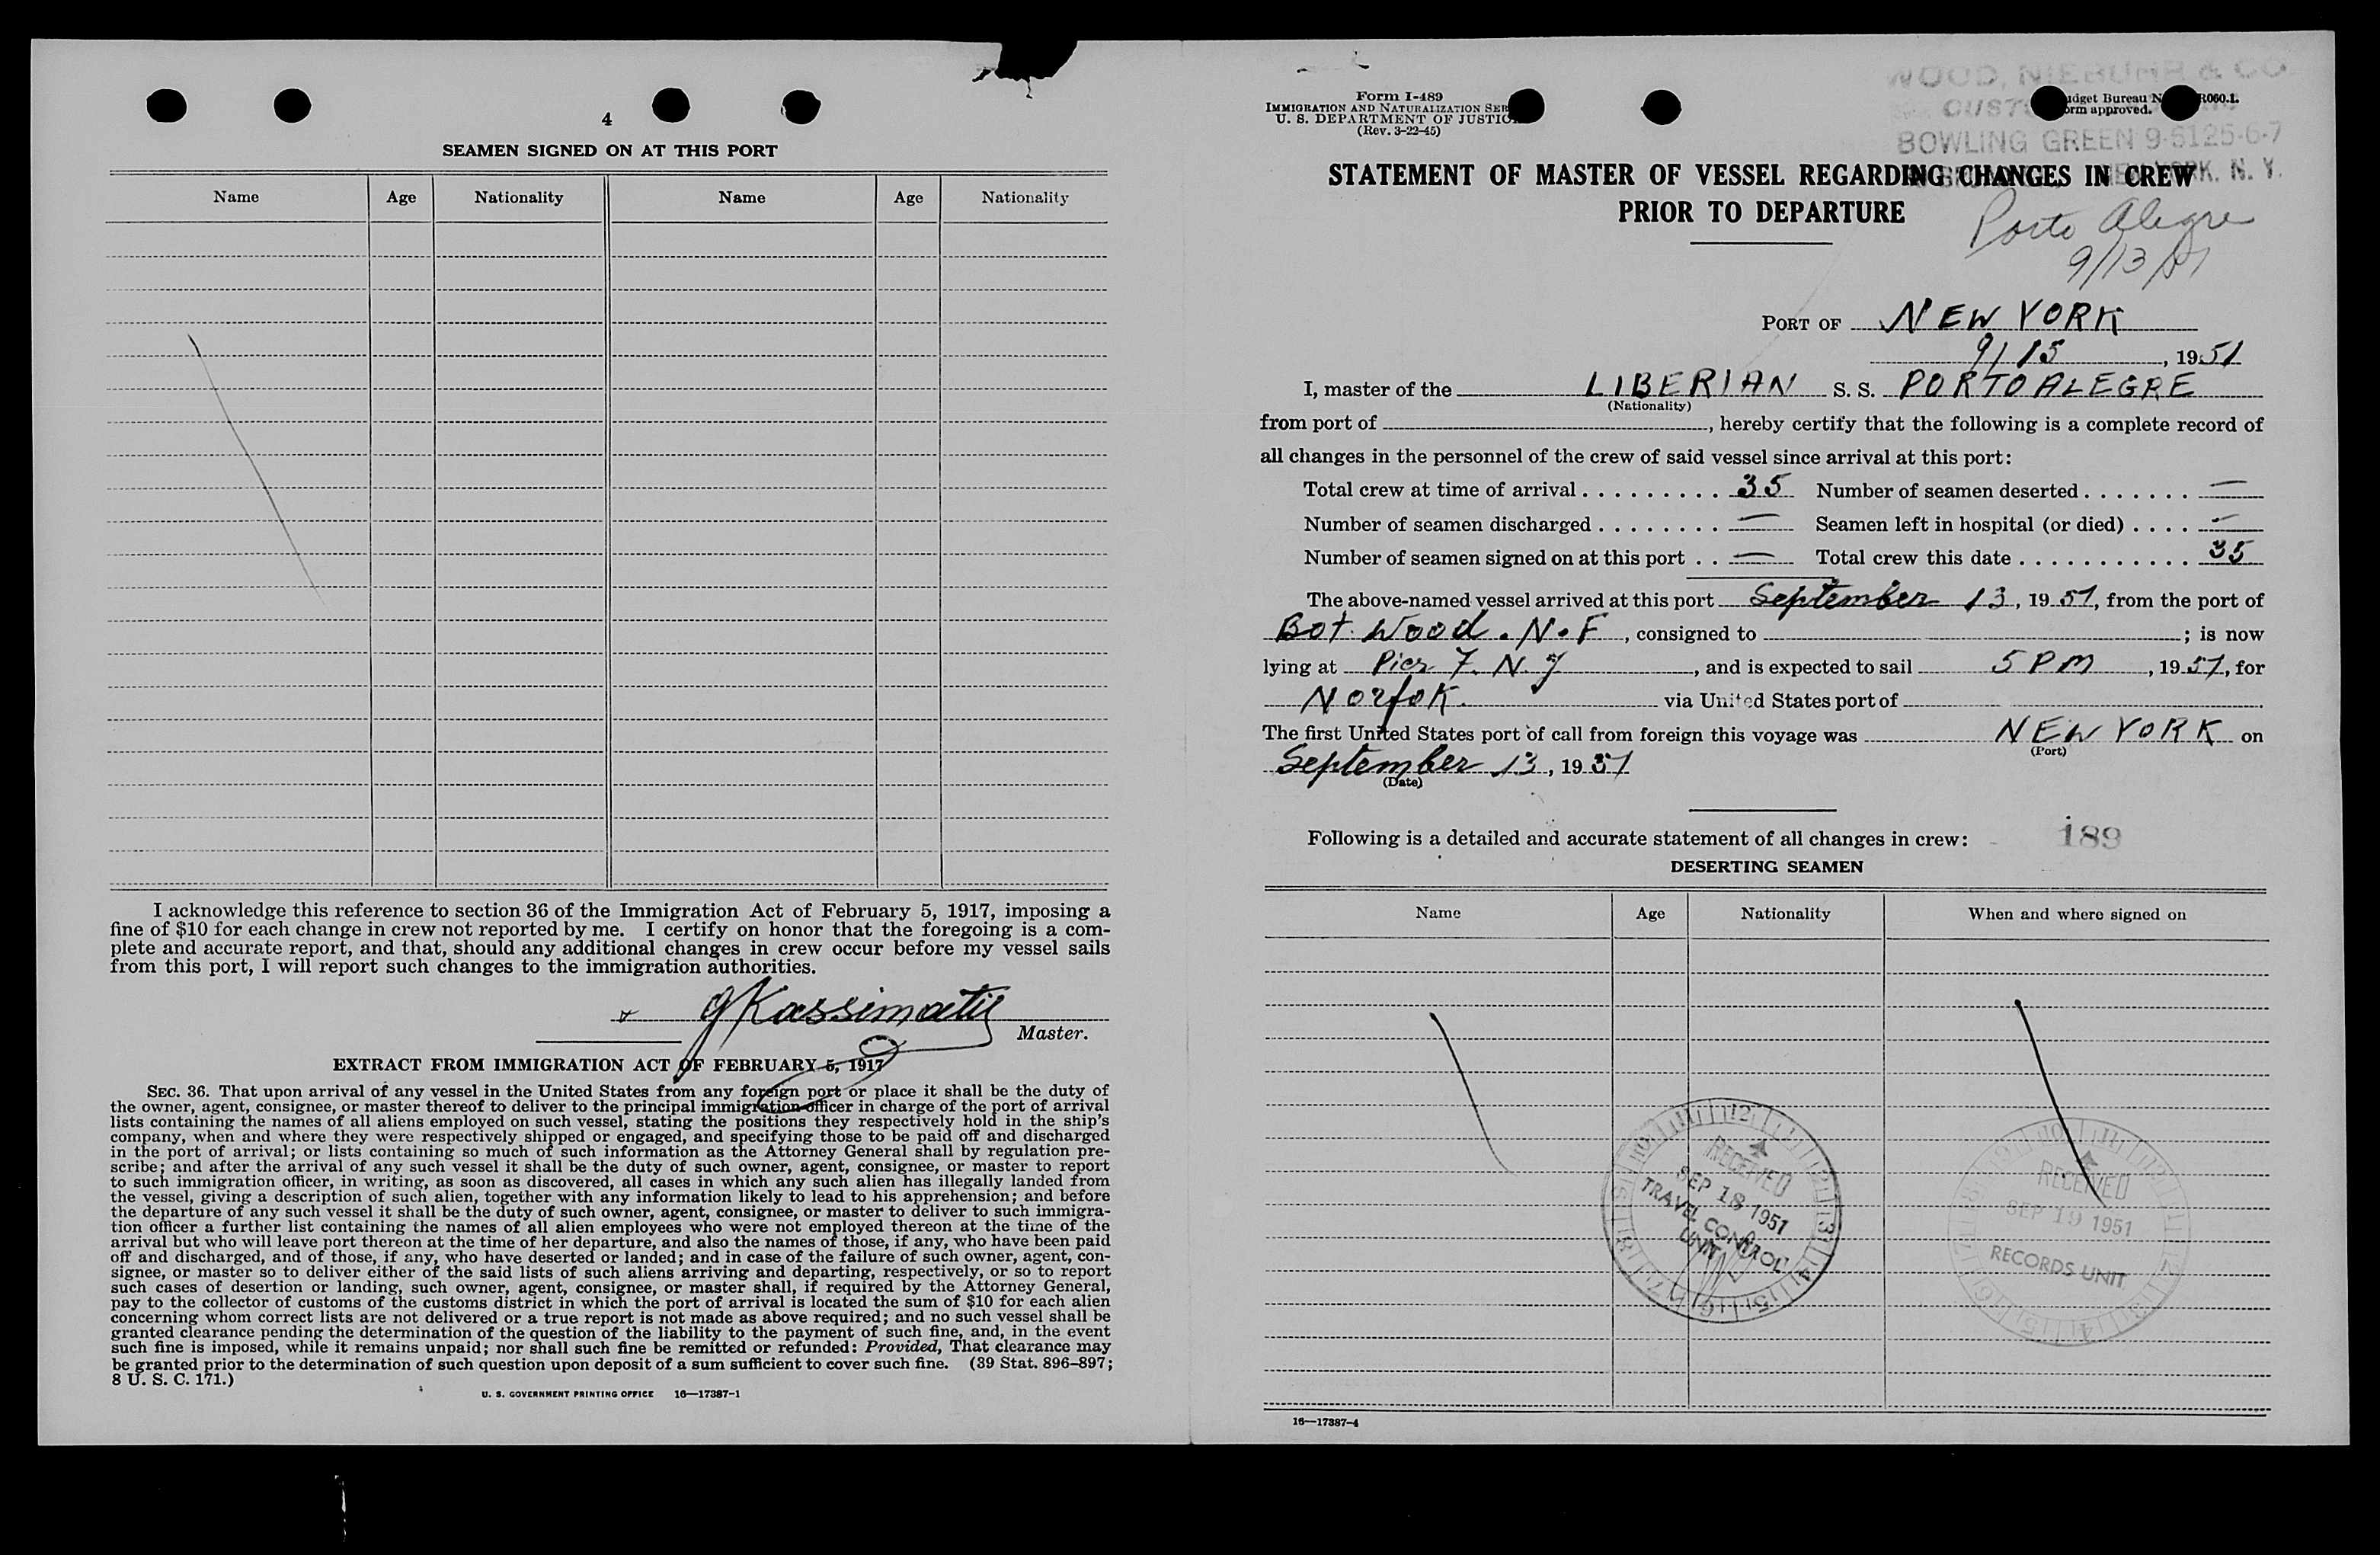 4
SEAMEN SIGNED ON AT THIS PORT
Name Age Nationality Name Age Nationality
I acknowledge this reference to section 36 of the Immigration Act of February 5, 1917, imposing a
fine of $10 for each change in crew not reported by me. I certify on honor that the foregoing is a com-
plete and accurate report, and that, should any additional changes in crew occur before my vessel sails
from this port, I will report such changes to the immigration authorities.
GKassimatis
Master.
EXTRACT FROM IMMIGRATION ACT OF FEBRUARY 5, 1917
SEC. 36. That upon arrival of any vessel in the United States from any foreign port or place it shall be the duty of
the owner, agent, consignee, or master thereof to deliver to the principal immigration officer in charge of the port of arrival
lists containing the names of all aliens employed on such vessel, stating the positions they respectively hold in the ship's
company, when and where they were respectively shipped or engaged, and specifying those to be paid off and discharged
in the port of arrival; or lists containing so much of such information as the Attorney General shall by regulation pre-
scribe; and after the arrival of any such vessel it shall be the duty of such owner, agent, consignee, or master to report
to such immigration officer, in writing, as soon as discovered, all cases in which any such alien has illegally landed from
the vessel, giving a description of such alien, together with any information likely to lead to his apprehension; and before
the departure of any such vessel it shall be the duty of such owner, agent, consignee, or master to deliver to such immigra-
tion officer a further list containing the names of all alien employees who were not employed thereon at the time of the
arrival but who will leave port thereon at the time of her departure, and also the names of those, if any, who have been paid
off and discharged, and of those, if any, who have deserted or landed; and in case of the failure of such owner, agent, con-
signee, or master so to deliver either of the said lists of such aliens arriving and departing, respectively, or so to report
such cases of desertion or landing, such owner, agent, consignee, or master shall, if required by the Attorney General,
pay to the collector of customs of the customs district in which the port of arrival is located the sum of $10 for each alien
concerning whom correct lists are not delivered or a true report is not made as above required; and no such vessel shall be
granted clearance pending the determination of the question of the liability to the payment of such fine, and, in the event
such fine is imposed, while it remains unpaid; nor shall such fine be remitted or refunded: Provided, That clearance may
be granted prior to the determination of such question upon deposit of a sum sufficient to cover such fine. (39 Stat. 896–897;
8 U. S. C. 171.)
U. S. GOVERNMENT PRINTING OFFICE 16—17387-1
Form I-489
IMMIGRATION AND NATURALIZATION SER
U. S. DEPARTMENT OF JUSTIC
(Rev. 3-22-45)
WOOD, NIEBUHR & CO
CUST
udget Bureau N R060.1.
orm approved.
BOWLING GREEN 9-6125-6-7
N. Y.
STATEMENT OF MASTER OF VESSEL REGARDING CHANGES IN CREW
PRIOR TO DEPARTURE
Porto Alegre
9/13/51
PORT OF NEW YORK
9/15, 1951
I, master of the LIBERIAN S. S. PORTO ALEGRE
(Nationality)
from port of , hereby certify that the following is a complete record of
all changes in the personnel of the crew of said vessel since arrival at this port:
Total crew at time of arrival . . . . . . . . . . 35 Number of seamen deserted . . . . . . . —
Number of seamen discharged . . . . . . . . — Seamen left in hospital (or died) . . . . —
Number of seamen signed on at this port . . — Total crew this date . . . . . . . . . . . 35
The above-named vessel arrived at this port September 13, 1951, from the port of
Bot. Wood. N.F, consigned to ; is now
lying at Pier 7. N. J, and is expected to sail 5 PM, 1951, for
Norfok. via United States port of
The first United States port of call from foreign this voyage was NEW YORK on
(Port)
September 13, 1951
(Date)
Following is a detailed and accurate statement of all changes in crew: 189
DESERTING SEAMEN
Name Age Nationality When and where signed on
RECEIVED
SEP 18 1951
TRAVEL CONTROL
UNIT
RECEIVED
SEP 19 1951
RECORDS UNIT
16—17387-4